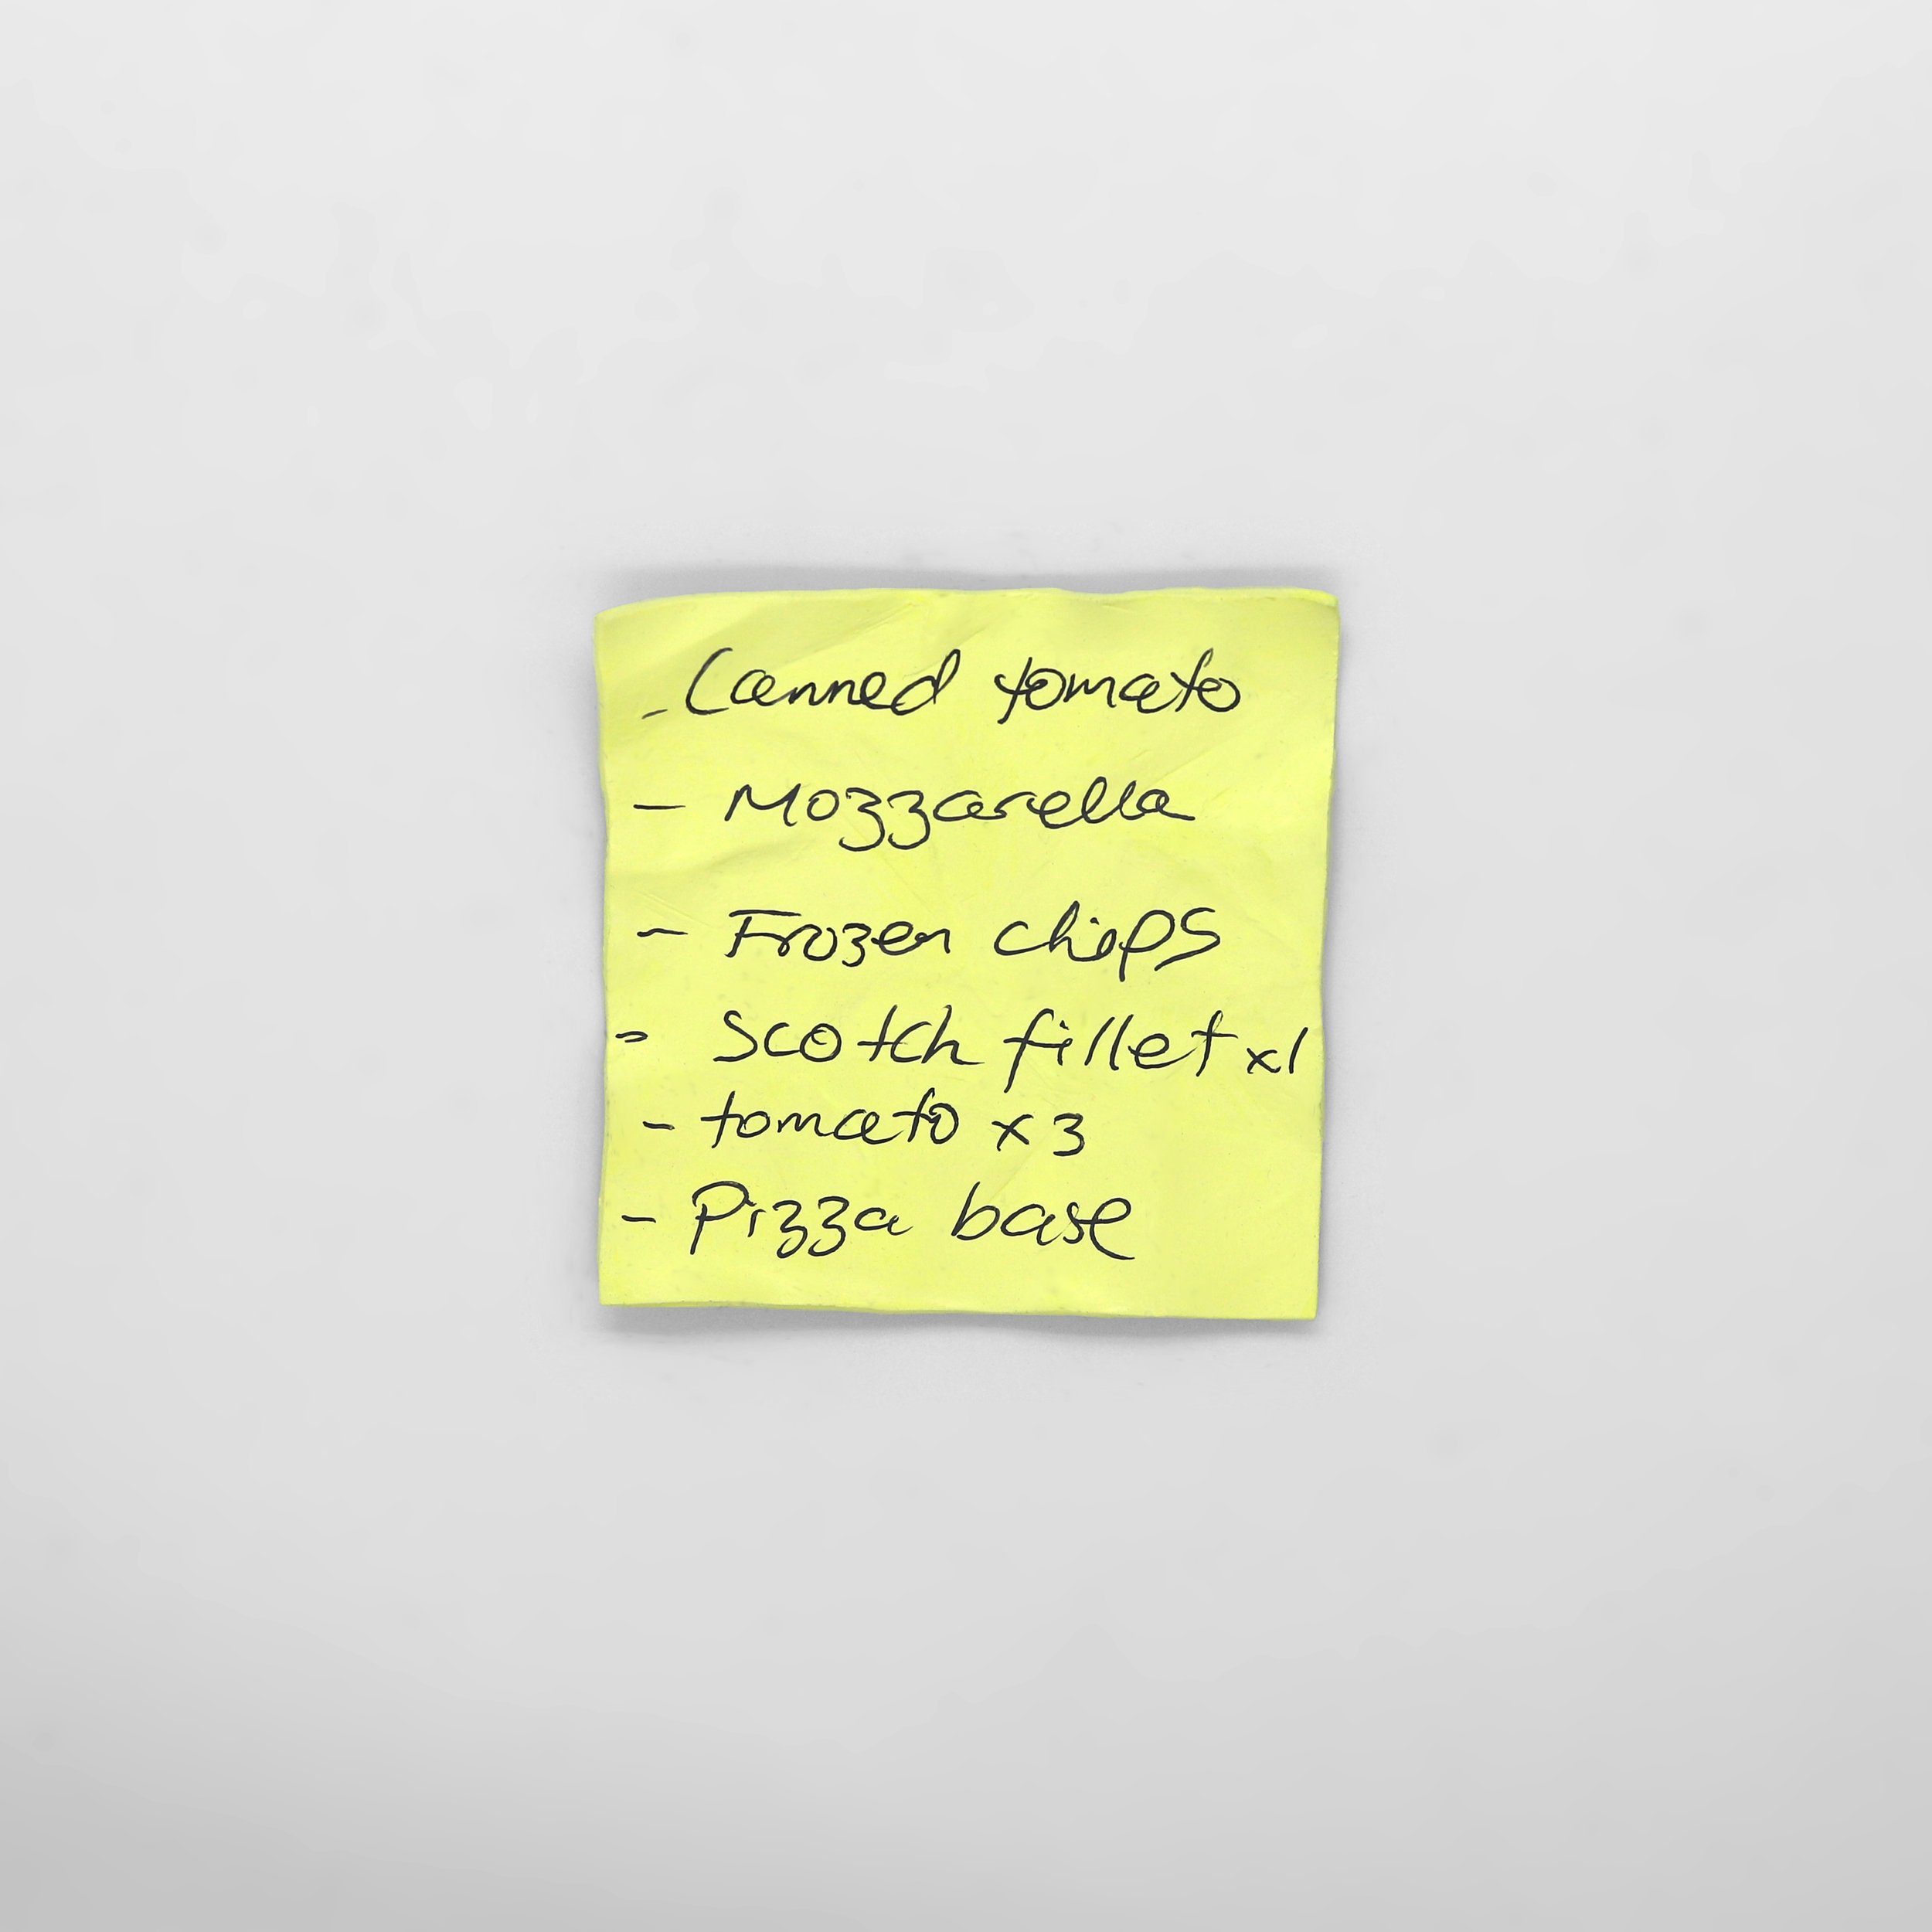 - Canned tomato
- Mozzarella
- Frozen chips
- Scotch fillet x1
- tomato x3
- Pizza base